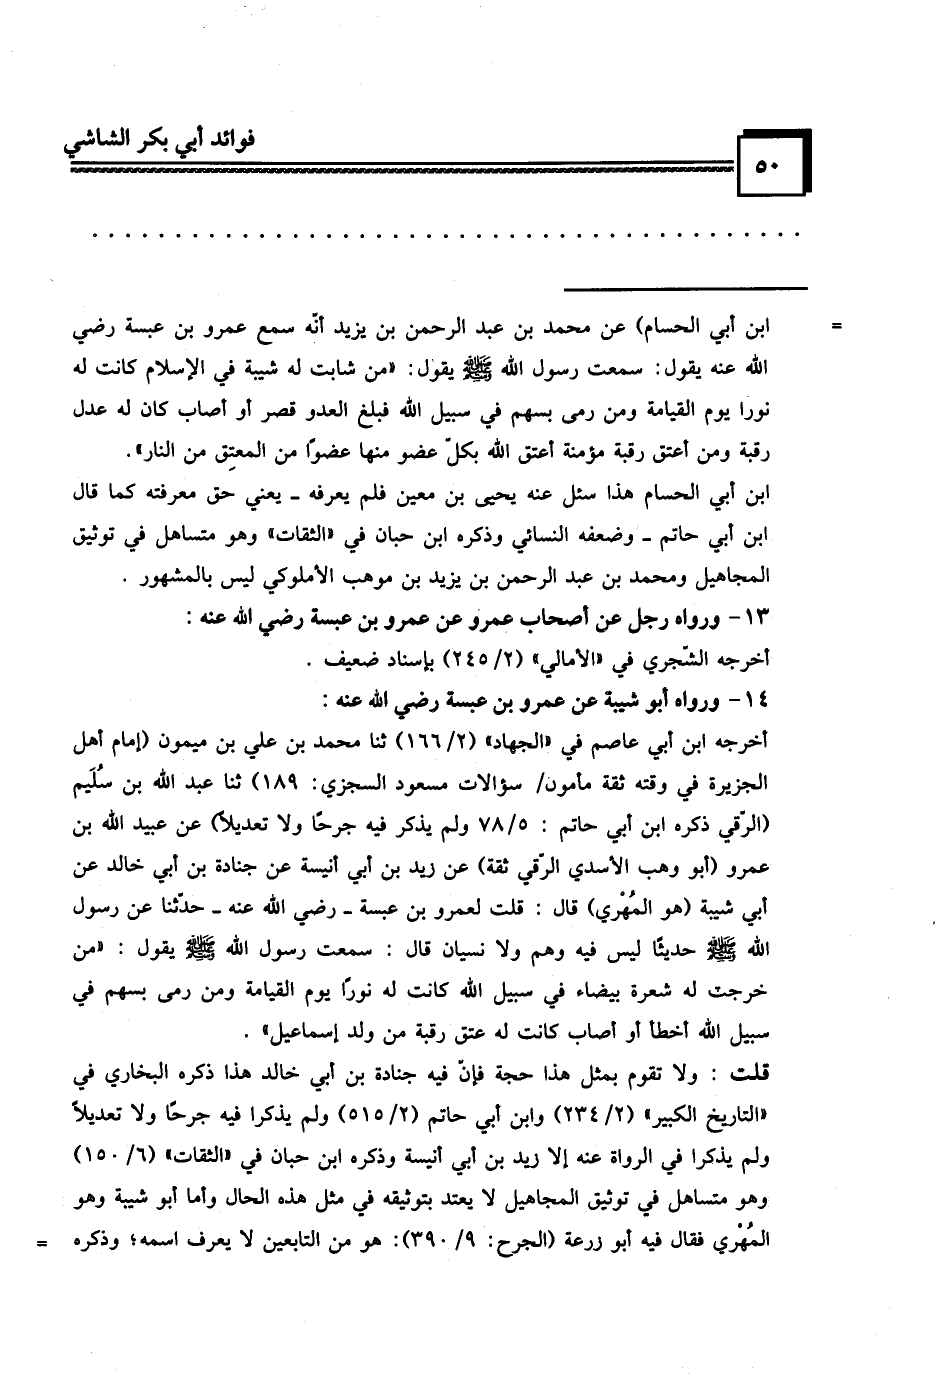 فوائد أبي بكر الشاشي
٥٠
= ابن أبي الحسام) عن محمد بن عبد الرحمن بن يزيد أنّه سمع عمرو بن عبسة رضي
الله عنه يقول: سمعت رسول الله ﷺ يقول: «من شابت له شيبة في الإسلام كانت له
نورا يوم القيامة ومن رمى بسهم في سبيل الله فبلغ العدو قصر أو أصاب كان له عدل
رقبة ومن أعتق رقبة مؤمنة أعتق الله بكلّ عضو منها عضوًا من المعتِق من النار».
ابن أبي الحسام هذا سئل عنه يحيى بن معين فلم يعرفه ـ يعني حق معرفته كما قال
ابن أبي حاتم ـ وضعفه النسائي وذكره ابن حبان في «الثقات» وهو متساهل في توثيق
المجاهيل ومحمد بن عبد الرحمن بن يزيد بن موهب الأملوكي ليس بالمشهور .
١٣- ورواه رجل عن أصحاب عمرو عن عمرو بن عبسة رضي الله عنه :
أخرجه الشّجري في «الأمالي» (٢/ ٢٤٥) بإسناد ضعيف .
١٤- ورواه أبو شيبة عن عمرو بن عبسة رضي الله عنه :
أخرجه ابن أبي عاصم في «الجهاد» (٢/ ١٦٦) ثنا محمد بن علي بن ميمون (إمام أهل
الجزيرة في وقته ثقة مأمون/ سؤالات مسعود السجزي: ١٨٩) ثنا عبد الله بن سُلَيم
(الرّقي ذكره ابن أبي حاتم : ٥/ ٧٨ ولم يذكر فيه جرحًا ولا تعديلاً) عن عبيد الله بن
عمرو (أبو وهب الأسدي الرّقي ثقة) عن زيد بن أبي أنيسة عن جنادة بن أبي خالد عن
أبي شيبة (هو المُهْري) قال : قلت لعمرو بن عبسة ـ رضي الله عنه ـ حدّثنا عن رسول
الله ﷺ حديثًا ليس فيه وهم ولا نسيان قال : سمعت رسول الله ﷺ يقول : «من
خرجت له شعرة بيضاء في سبيل الله كانت له نورًا يوم القيامة ومن رمى بسهم في
سبيل الله أخطأ أو أصاب كانت له عتق رقبة من ولد إسماعيل» .
قلت : ولا تقوم بمثل هذا حجة فإنّ فيه جنادة بن أبي خالد هذا ذكره البخاري في
«التاريخ الكبير» (٢/ ٢٣٤) وابن أبي حاتم (٢/ ٥١٥) ولم يذكرا فيه جرحًا ولا تعديلاً
ولم يذكرا في الرواة عنه إلا زيد بن أبي أنيسة وذكره ابن حبان في «الثقات» (٦/ ١٥٠)
وهو متساهل في توثيق المجاهيل لا يعتد بتوثيقه في مثل هذه الحال وأما أبو شيبة وهو
المُهْري فقال فيه أبو زرعة (الجرح: ٩/ ٣٩٠): هو من التابعين لا يعرف اسمه؛ وذكره =